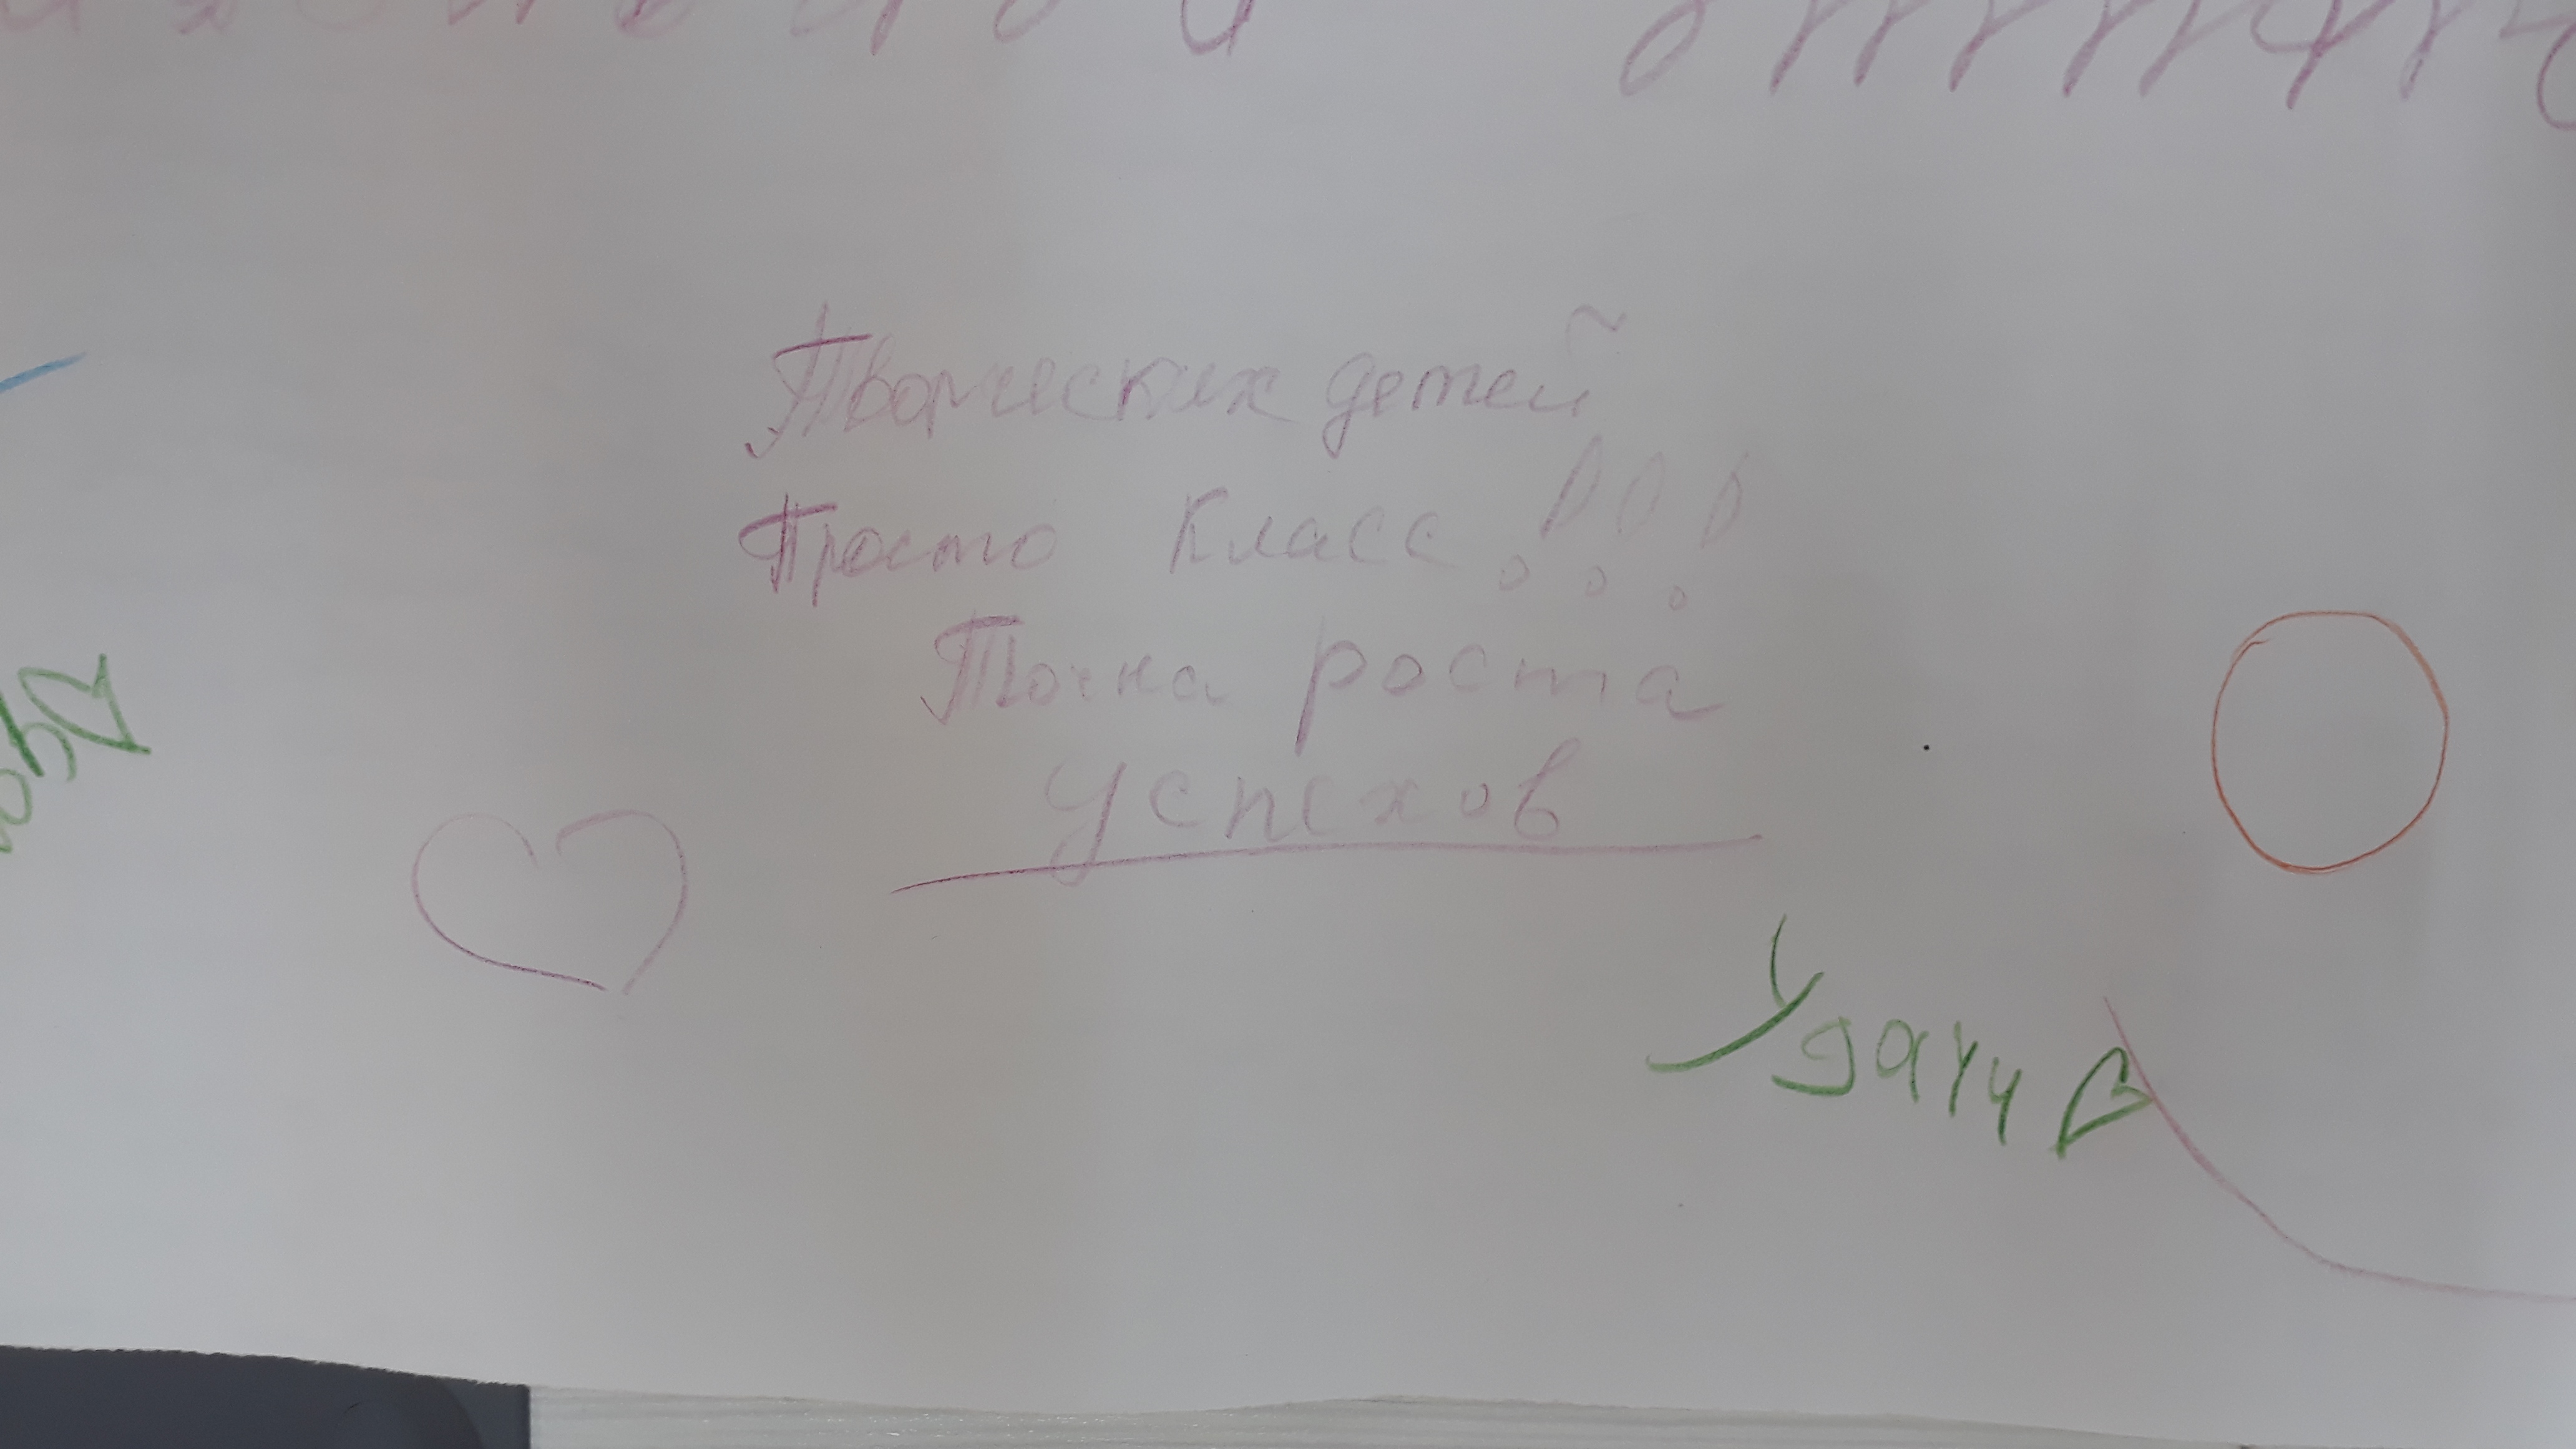 Творческих детей
Просто Класс!!!
Точка роста
успехов
Удачи